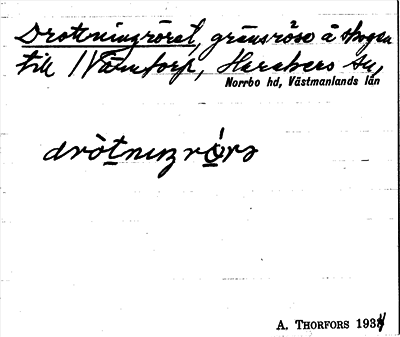 Drottningröret, gränsröse å skogen
till Västtorp, Harakers sn,
Norrbo hd, Västmanlands län
dròtnıŋrö́rə
A. THORFORS 1934